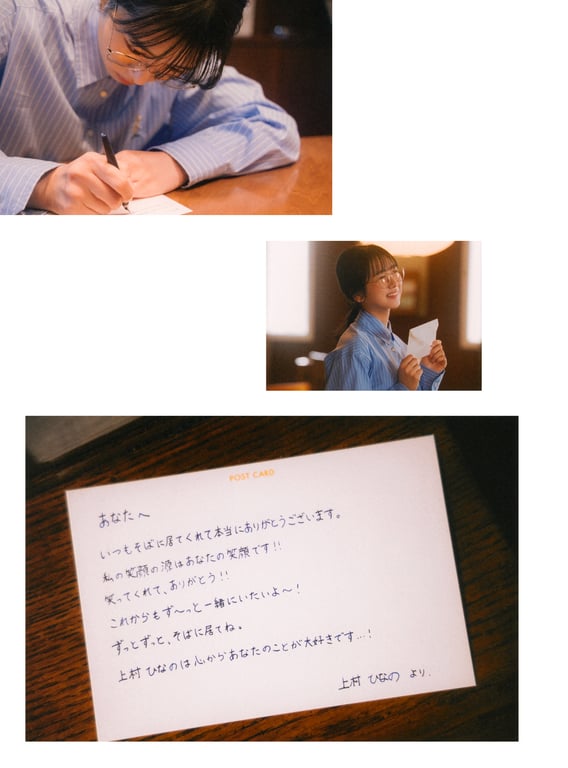 POST CARD
あなたへ
いつもそばに居てくれて本当にありがとうございます。
私の笑顔の源はあなたの笑顔です!!
笑ってくれて、ありがとう!!
これからもず〜っと一緒にいたいよ〜!
ずっとずっと、そばに居てね。
上村ひなのは心からあなたのことが大好きです…!
上村 ひなの より.